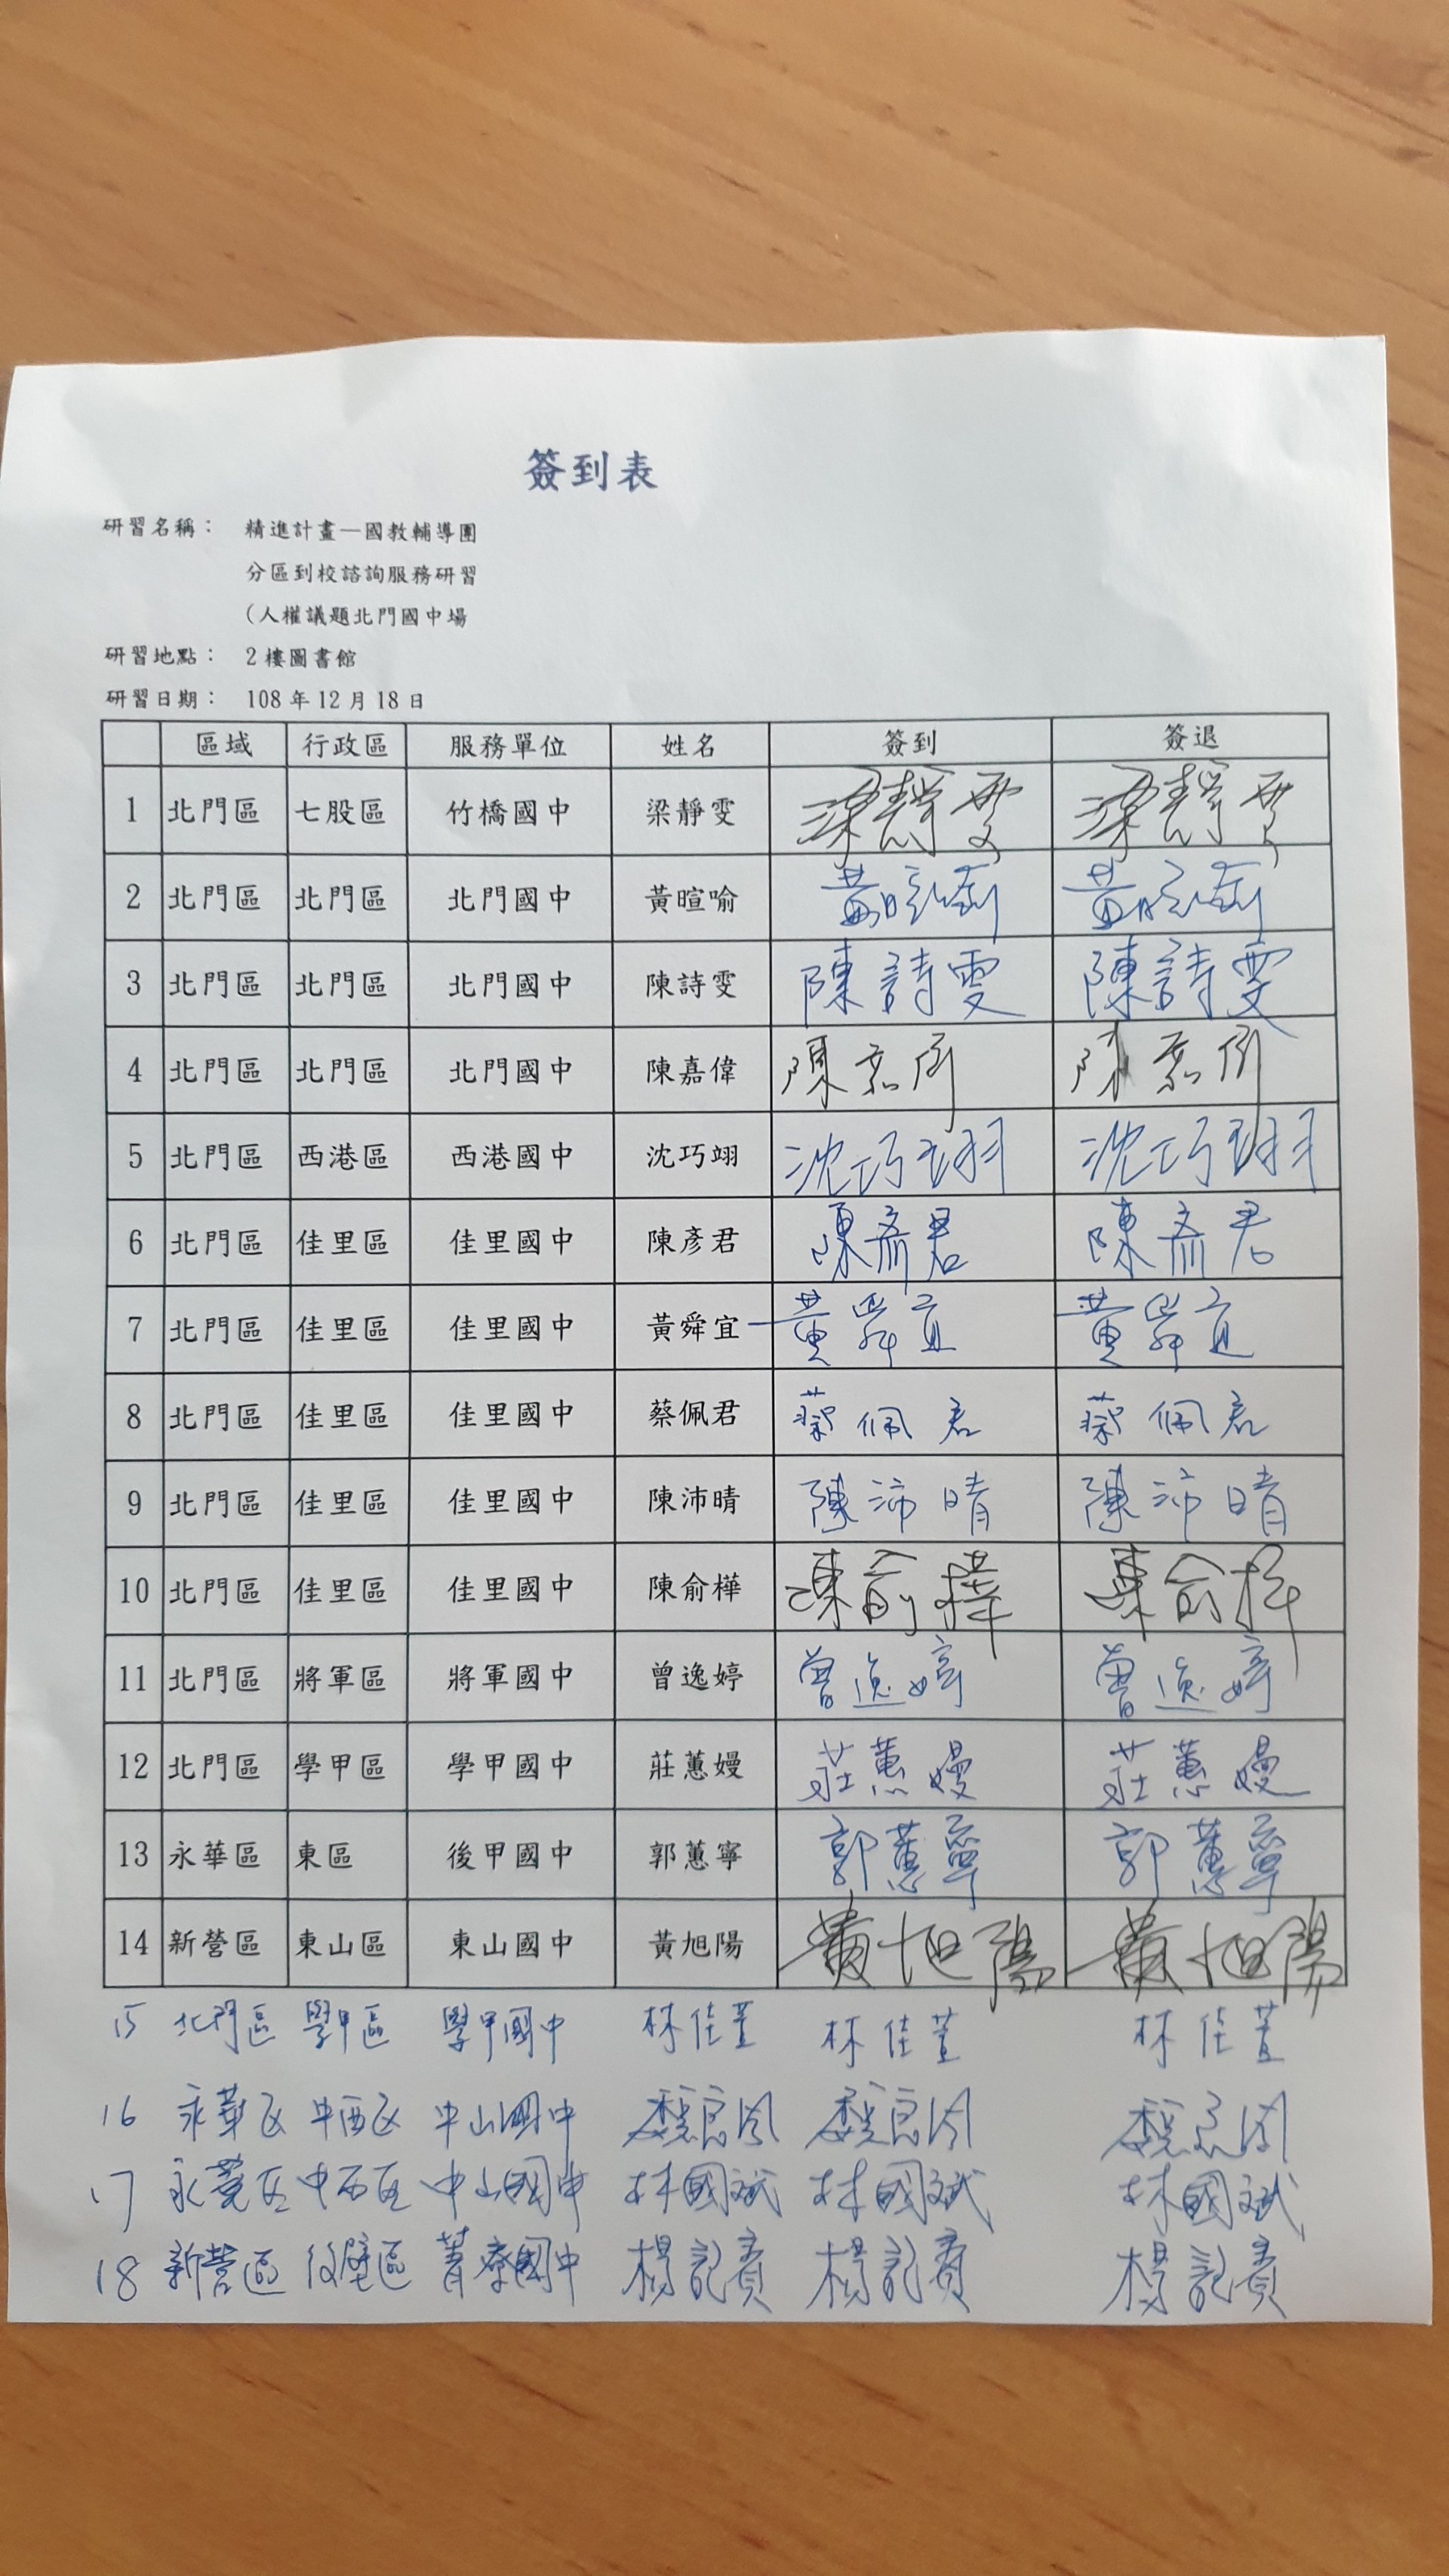 簽到表
研習名稱： 精進計畫—國教輔導團
分區到校諮詢服務研習
(人權議題北門國中場
研習地點： 2樓圖書館
研習日期： 108年12月18日
區域 行政區 服務單位 姓名 簽到 簽退
1 北門區 七股區 竹橋國中 梁靜雯 梁靜雯 梁靜雯
2 北門區 北門區 北門國中 黃暄喻 黃暄喻 黃暄喻
3 北門區 北門區 北門國中 陳詩雯 陳詩雯 陳詩雯
4 北門區 北門區 北門國中 陳嘉偉 陳嘉偉 陳嘉偉
5 北門區 西港區 西港國中 沈巧翊 沈巧翊 沈巧翊
6 北門區 佳里區 佳里國中 陳彥君 陳彥君 陳彥君
7 北門區 佳里區 佳里國中 黃舜宜 黃舜宜 黃舜宜
8 北門區 佳里區 佳里國中 蔡佩君 蔡佩君 蔡佩君
9 北門區 佳里區 佳里國中 陳沛晴 陳沛晴 陳沛晴
10 北門區 佳里區 佳里國中 陳俞樺 陳俞樺 陳俞樺
11 北門區 將軍區 將軍國中 曾逸婷 曾逸婷 曾逸婷
12 北門區 學甲區 學甲國中 莊蕙嫚 莊蕙嫚 莊蕙嫚
13 永華區 東區 後甲國中 郭蕙寧 郭蕙寧 郭蕙寧
14 新營區 東山區 東山國中 黃旭陽 黃旭陽 黃旭陽
15 北門區 學甲區 學甲國中 林佳萱 林佳萱 林佳萱
16 永華区 中西区 中山國中
17 永華区 中西区 中山國中 林國斌 林國斌 林國斌
18 新營區 後壁區 菁寮國中 楊記賓 楊記賓 楊記賓